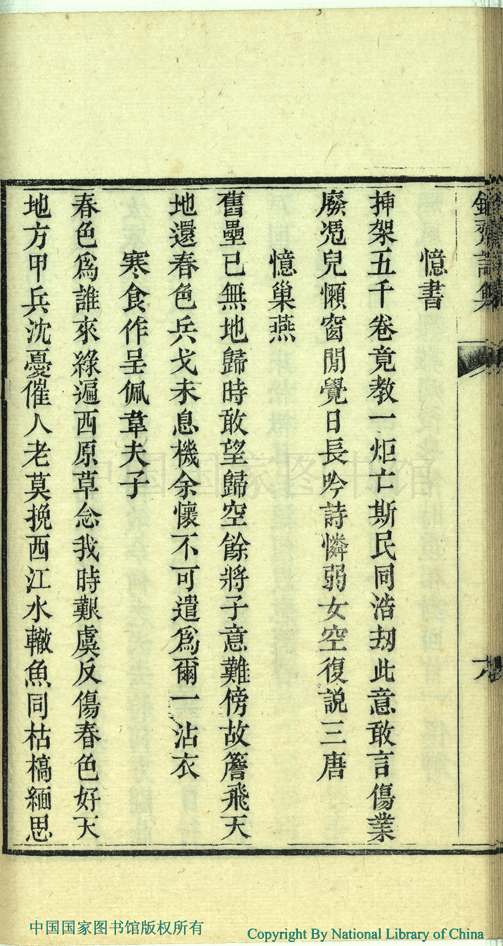 憶書
挿架五千卷竟教一炬亡斯民同浩刼此意敢言傷業
廢憑兒懶窗閒覺日長吟詩憐弱女空復説三唐
憶巢燕
舊壘已無地歸時敢望歸空餘將子意難傍故簷飛天
地還春色兵戈未息機余懷不可遣爲爾一沾衣
寒食作呈佩韋夫子
春色爲誰來綠遍西原草念我時艱虞反傷春色好天
地方甲兵沈憂催人老莫挽西江水轍魚同枯槁緬思
中国国家图书馆
中国国家图书馆版权所有
Copyright By National Library of China